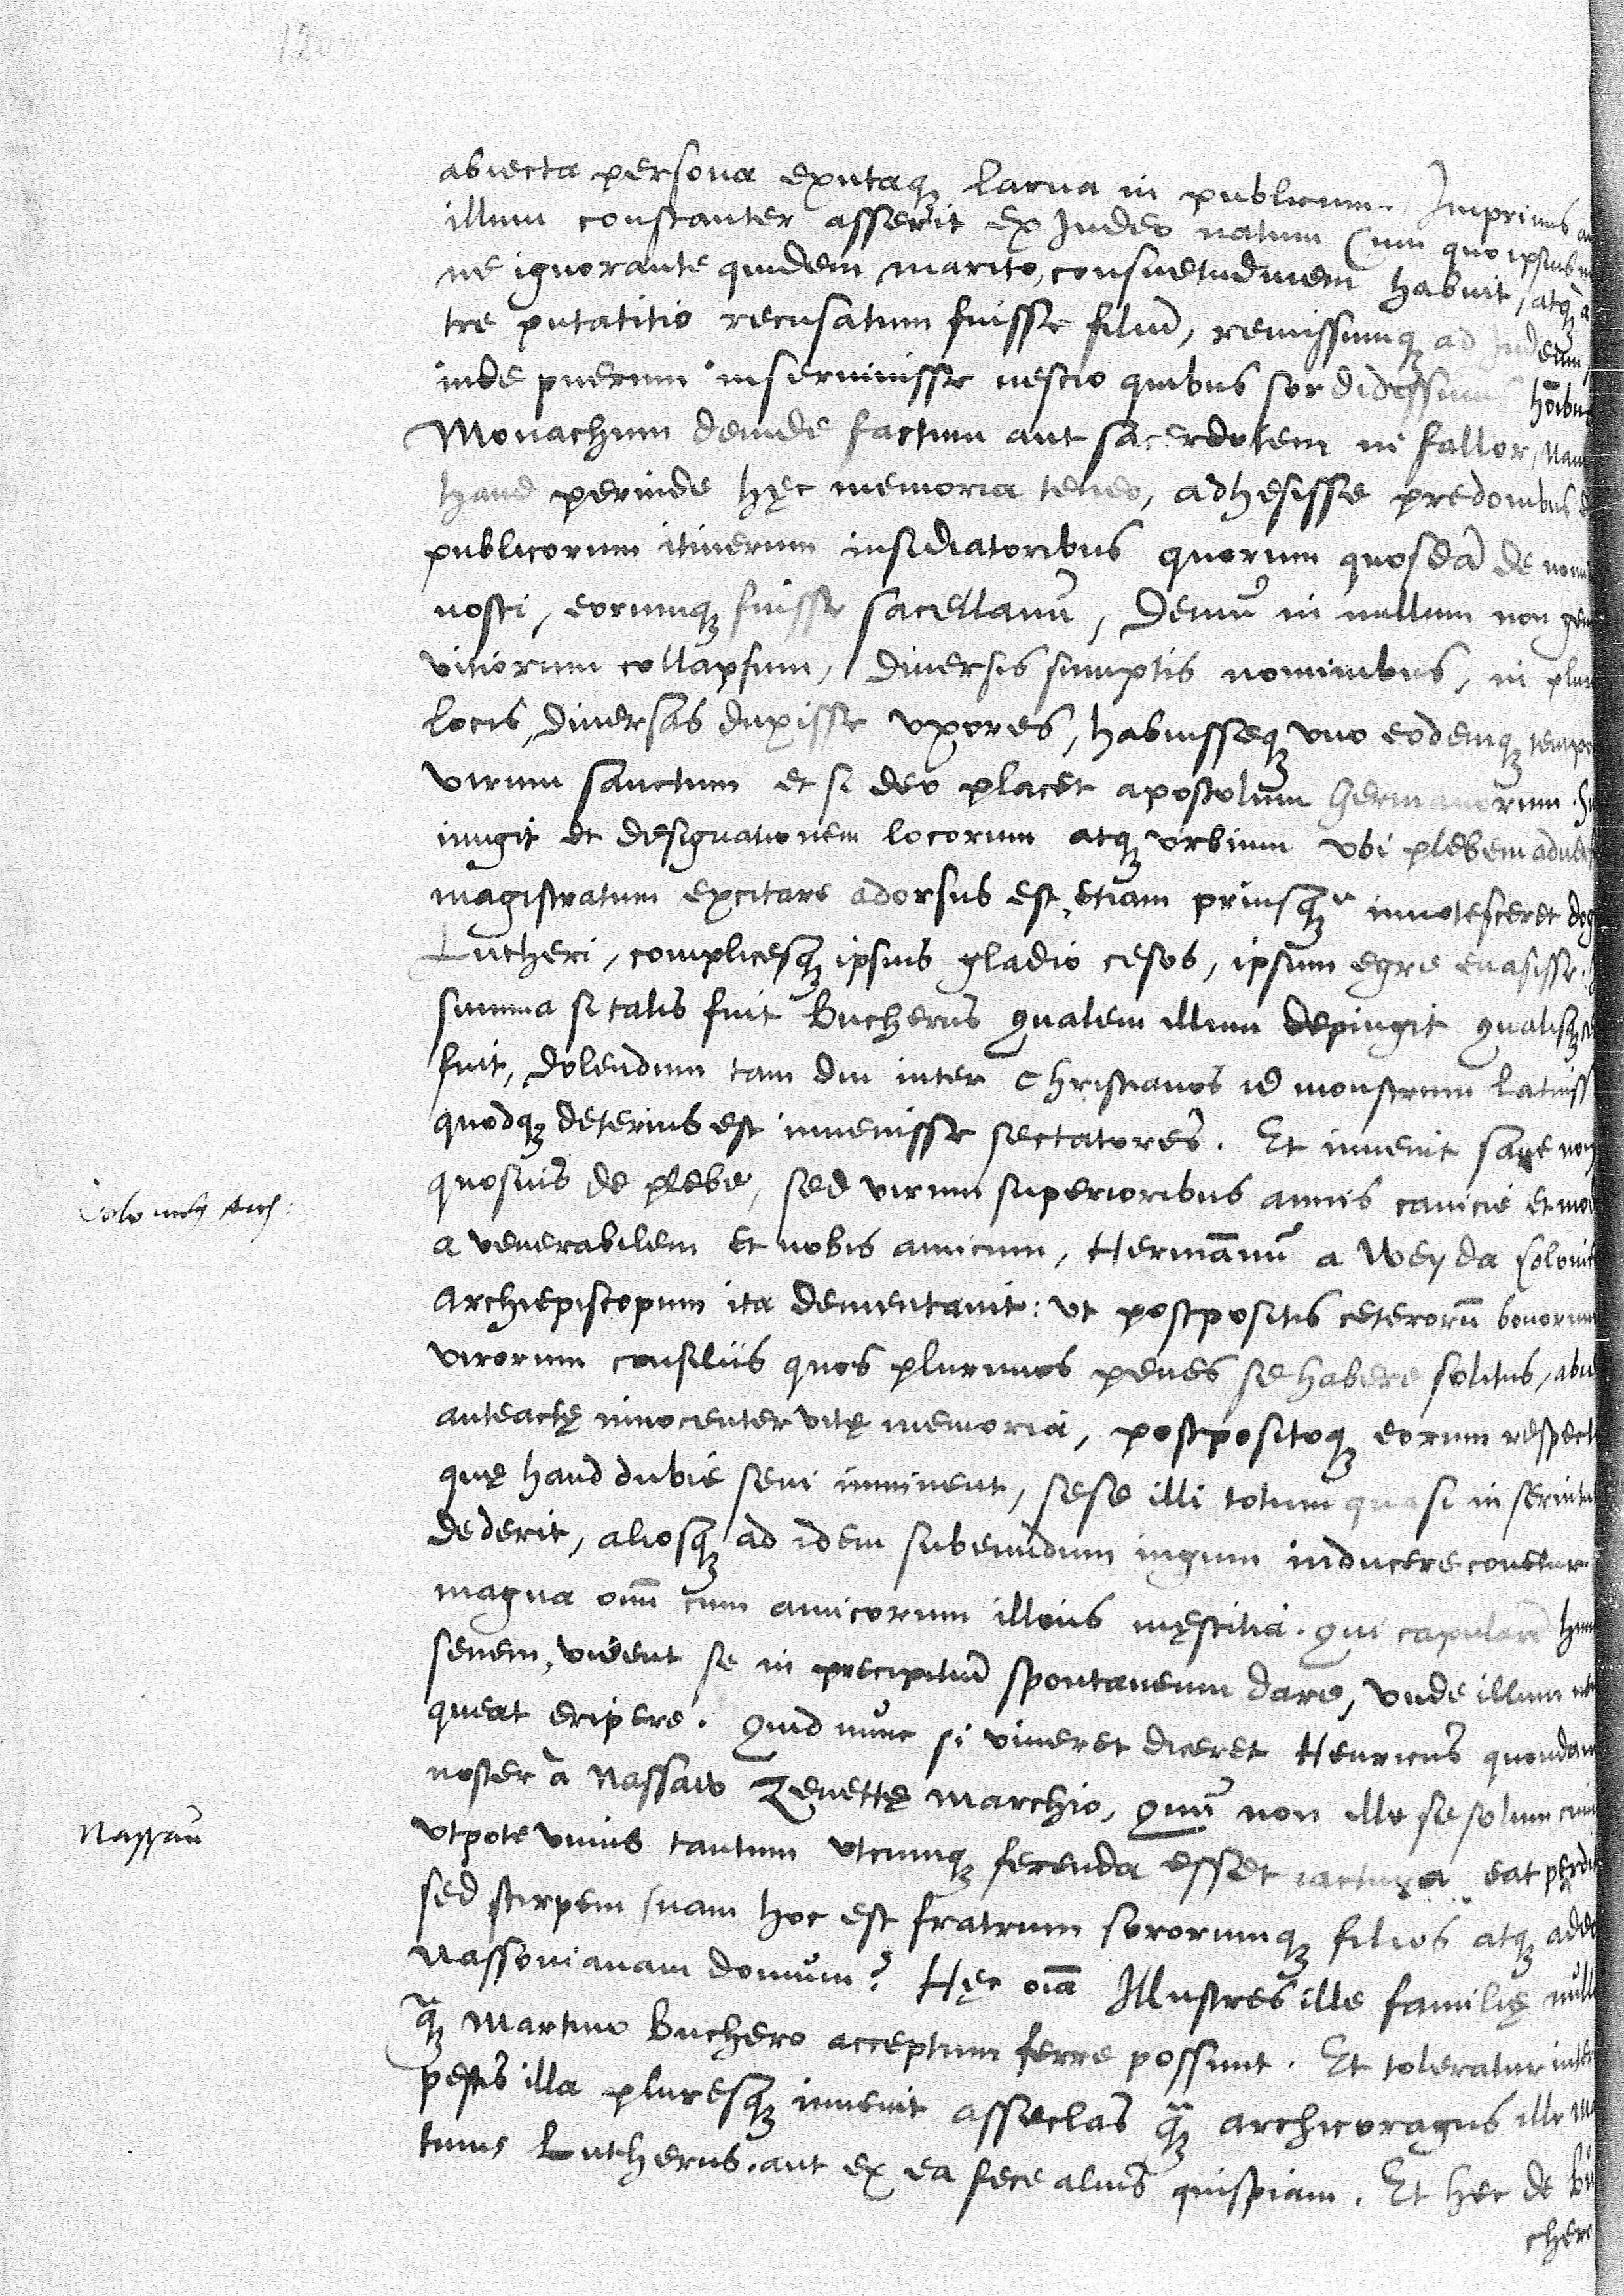 abiecta persona exutaq; larua in publicum. Imprimis
illum constanter asserit ex Judeo natum (cum quo ipsius
ne ignorante quidem marito, consuetudinem habuit, atq; a
tre putatitio recusatum fuisse filiū, remissumq; ad Judeum,
inde puerum inseruiuisse nescio quibus sordidissimis hōibus
Monachum deinde factum aut sacerdotem ni fallor, Nam
haud perinde hęc memoria teneo, adhesisse predonibus
publicorum itinerum insidiatoribus quorum quosdā de nomi
nosti, eorumq; fuisse sacellanū, Demū in nullum non gen
vitiorum collapsum, diuersis sumptis nominibus, in plur
locis, diuersas duxisse vxores, habuisseq; vno eodemq; tempo
virum sanctum et si deo placet apostolum Germanorum.
iungit et designationem locorum atq; vrbium vbi plebem aduers
magistratum excitare adorsus est, etiam priusq; innotesceret dog
Lutheri, complicesq; ipsius gladio cesos, ipsum egre euasisse.
summa si talis fuit Bucherus qualem illum depingit qualisq;
fuit, dolendum tam diu inter Christianos id monstrum latuiss
quodq; deterius est inuenisse sectatores. Et inuenit sane non
quosuis de plebe, sed virum superioribus annis canicie et mo
a venerabilem et nobis amicum, Hermānū a Weyda Coloni
Archiepiscopum ita dementauit: vt postpositis ceterorū bonorum
virorum consiliis quos plurimos penes se habere solitus,
anteactę innocenter vitę memoria, postpositoq; eorum respect
quę haud dubie seni imminent, sese illi totum quasi in seruitu
dederit, aliosq; ad idem subeundum iugum inducere conetur
magna omī cum amicorum illius męstitia. Qui capularē hun
senem, vident se in precipitiū spontaneum dare, vnde illum
queat eripere. Quid nunc si viueret diceret Henricus quondam
noster à Nassaw Zenettę marchio, Quū non ille se solum
vtpote vnius tantum vtcumq; ferenda esset iactura eat perdi
sed stirpem suam hoc est fratrum sororumq; filios atq; adeo
Nassouianam domum? Hęc oīa Illustres ille familię null
q̄; Martino Buchero acceptum ferre possunt. Et toleratur inter
pestis illa pluresq; inuenit asseclas q̄; archicoragus ille Ma
tinus Lutherus, aut ex ea fece alius quispiam. Et hec de Bu
chero
Nassau